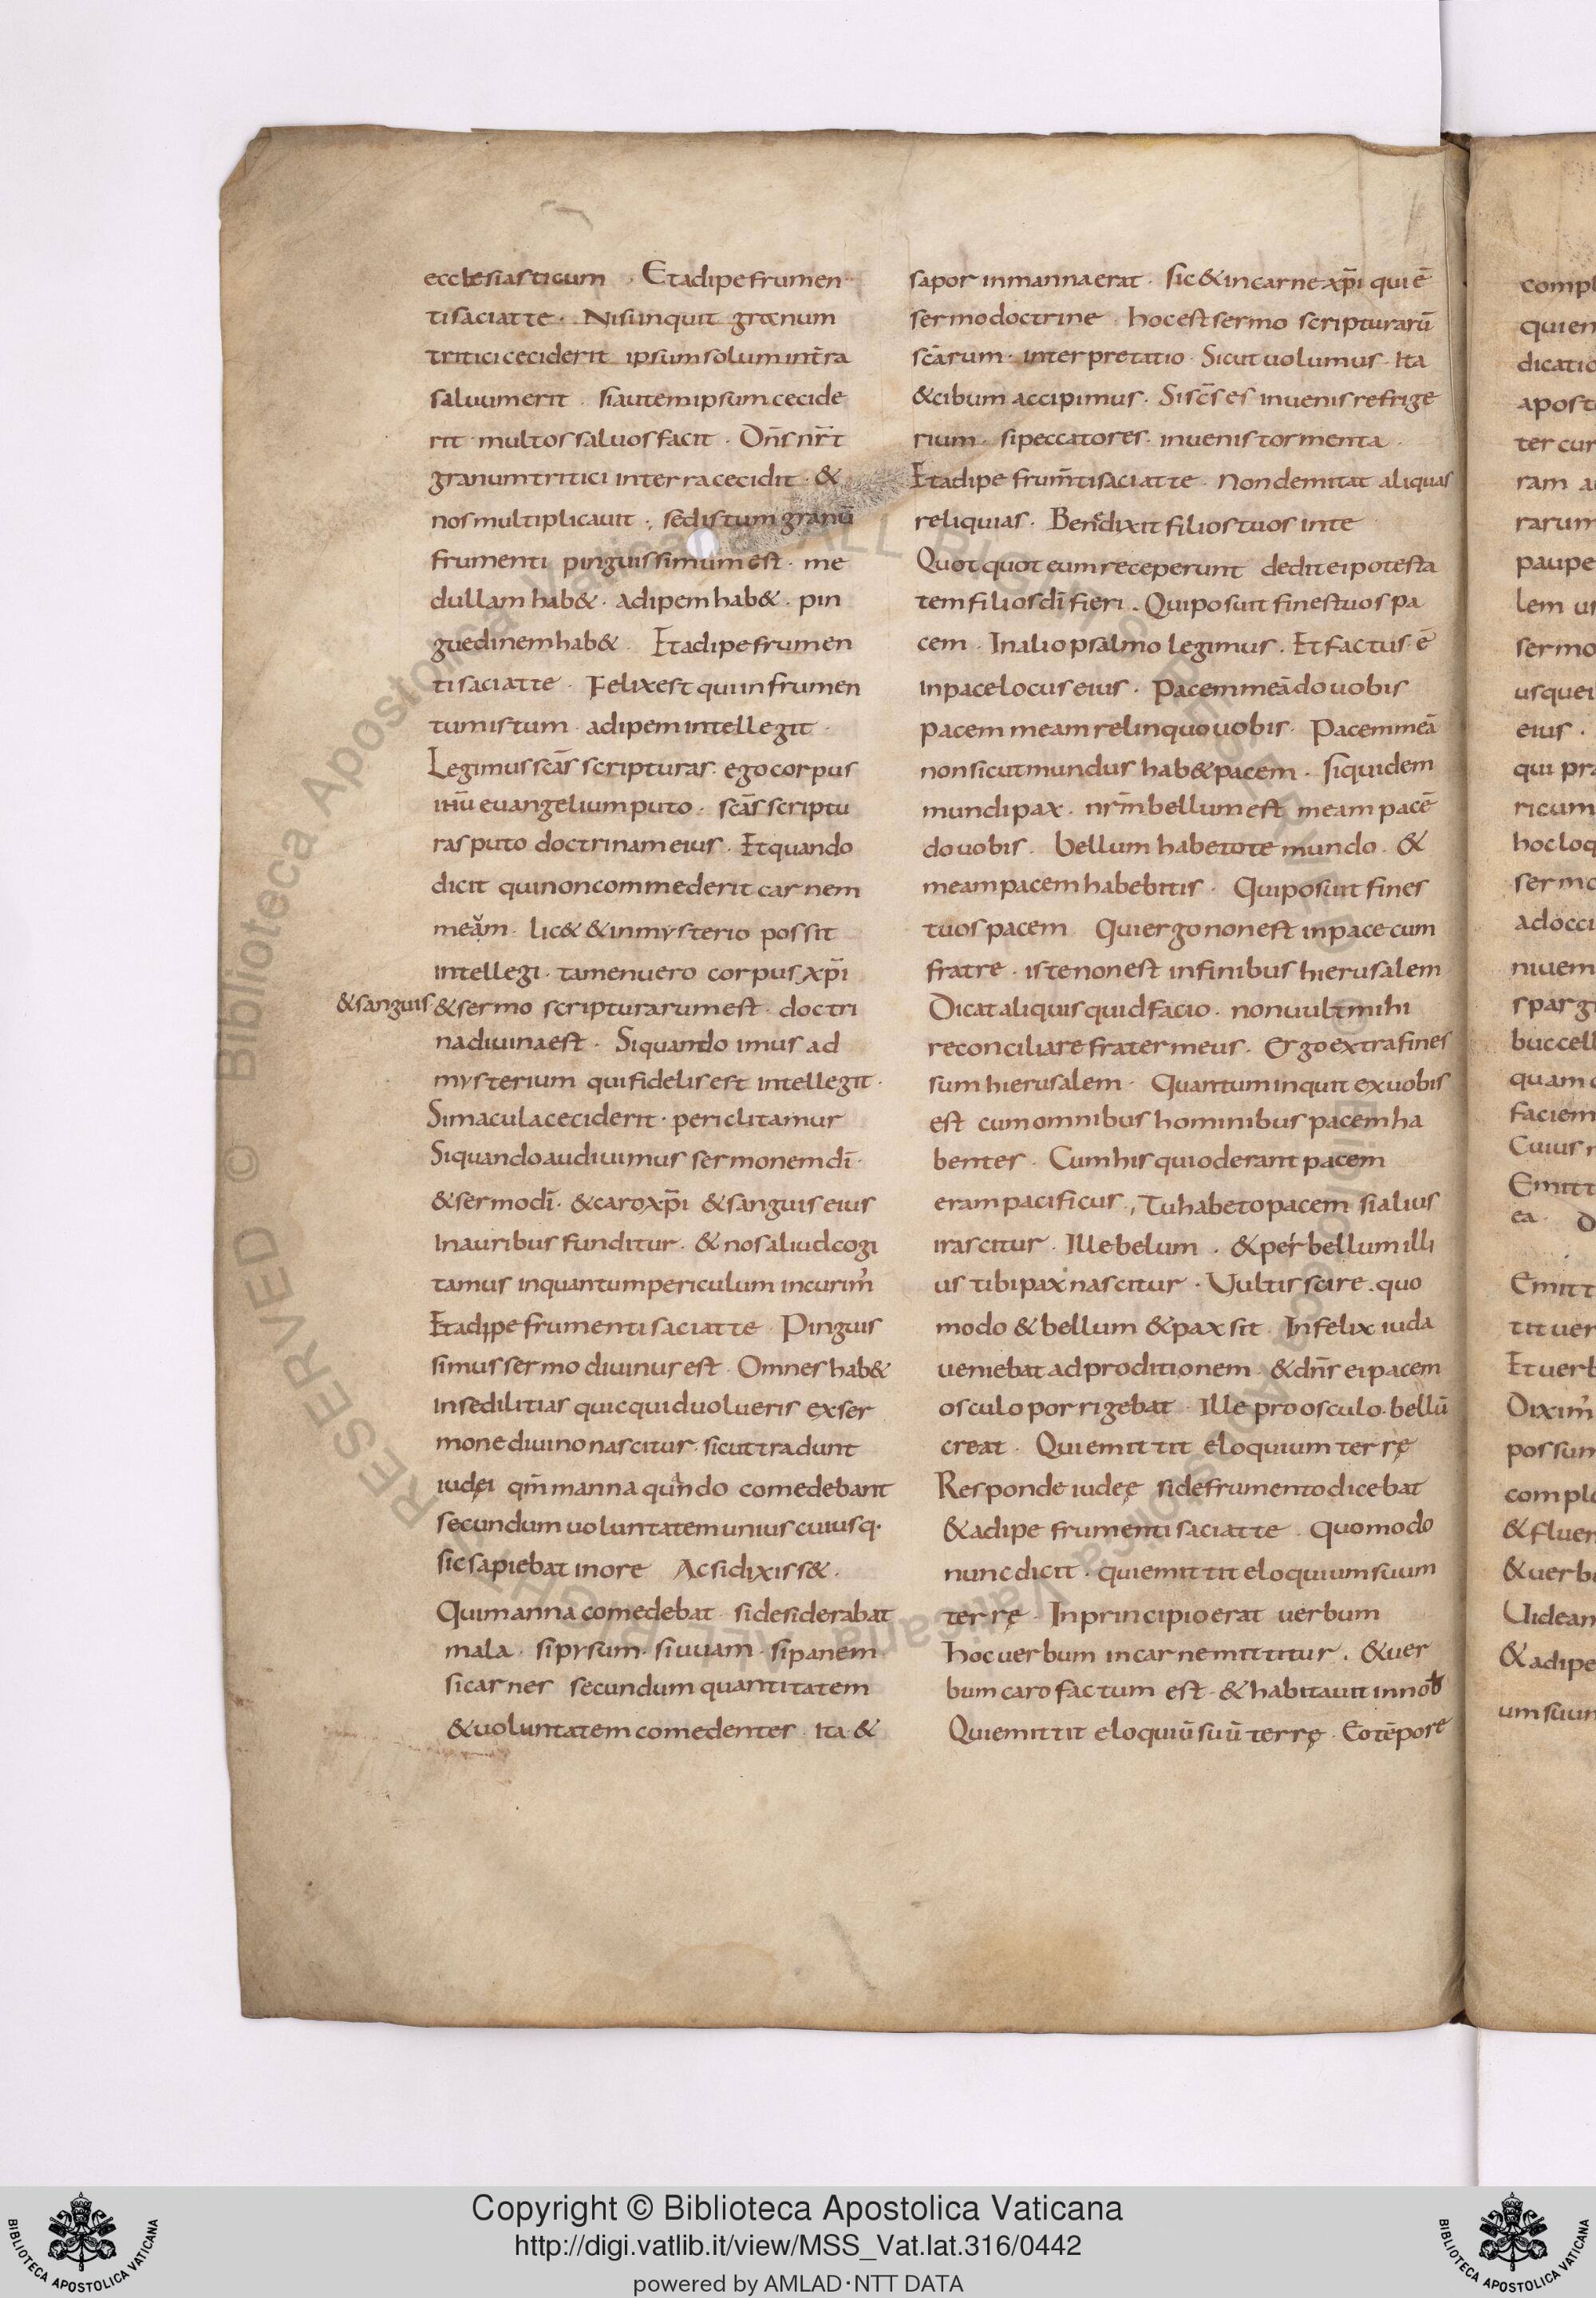 ecclesiasticum · Et adipe frumen
ti saciat te · Nisi inquit granum
tritici ceciderit ipsum solum intra
saluum erit · si autem ipsum cecide
rit multos saluos facit · Dn̄s nr̄ t
granum tritici in terra cecidit · &
nos multiplicauit · sed istum granū
frumenti pinguissimum est · me
dullam hab& · adipem hab& · pin
guedinem hab& · Et adipe frumen
ti saciat te · Felix est qui in frumen
tum istum · adipem intellegit ·
Legimus scās scripturas · ego corpus
ih̄ū euangelium puto · scās scriptu
ras puto doctrinam eius · Et quando
dicit qui non commederit carnem
meam · lic& & in mysterio possit
intellegi · tamen uero corpus xp̄i
&sanguis & sermo scripturarum est · doctri
na diuina est · Si quando imus ad
mysterium qui fidelis est intellegit ·
Si macula ceciderit · periclitamur
Si quando audiuimus sermonem dī ·
& sermo dī · & caro xp̄i & sanguis eius
In auribus funditur · & nos aliud cogi
tamus in quantum periculum incurim̄
Et adipe frumenti saciat te · Pinguis
simus sermo diuinus est · Omnes hab&
in se dilitias quicquid uolueris ex ser
mone diuino nascitur · sicut tradunt
iudęi qm̄ manna quando comedebant
secundum uoluntatem unius cuiusq·
sic sapiebat in ore Ac si dixiss& ·
Qui manna comedebat · si desiderabat
mala · si pysum · si uuam · si panem
si carnes secundum quantitatem
& uoluntatem comedentes · Ita &
sapor in manna erat · sic & in carne xp̄i qui ē
sermo doctrine · hoc est sermo scripturarū
scārum · interpretatio · Sicut uolumus · Ita
& cibum accipimus · Si sc̄s es inuenis refrige
rium · si peccatores · inuenis tormenta ·
Et adipe frum̄ti saciat te · Non demitat aliquas
reliquias · Benedixit filios tuos in te
Quot quot eum receperunt dedit ei potesta
tem filios dī fieri · Qui posuit fines tuos pa
cem · In alio psalmo legimus · Et factus ē
in pace locus eius · Pacem meā do uobis
pacem meam relinquo uobis · Pacem meā
non sicut mundus hab& pacem · Siquidem
mundi pax · nr̄m bellum est meam pacē
do uobis · bellum habetote mundo · &
meam pacem habebitis · Qui posuit fines
tuos pacem Qui ergo non est in pace cum
fratre · iste non est in finibus hierusalem
Dicat aliquis quid facio · non uult mihi
reconciliare frater meus · Ergo extra fines
sum hierusalem · Quantum inquit ex uobis
est cum omnibus hominibus pacem ha
bentes · Cum his qui oderant pacem
eram pacificus · Tu habeto pacem si alius
irascitur · Ille belum · & per bellum illi
us tibi pax nascitur · Uultis scire · quo
modo & bellum & pax sit · Infelix iuda
ueniebat ad proditionem · & dn̄s ei pacem
osculo porrigebat · Ille pro osculo · bellū
creat · Qui emittit eloquium terrę
Responde iudeę si de frumento dicebat
& adipe frumenti saciat te · Quomodo
nunc dicit · qui emittit eloquium suum
terrę · In principio erat uerbum
hoc uerbum in carne mittitur · & uer
bum caro factum est · & habitauit in nob
Qui emittit eloquiū suū terrę · Eo tēpore
Copyright © Biblioteca Apostolica Vaticana
http://digi.vatlib.it/view/MSS_Vat.lat.316/0442
powered by AMLAD·NTT DATA
BIBLIOTECA APOSTOLICA VATICANA
BIBLIOTECA APOSTOLICA VATICANA